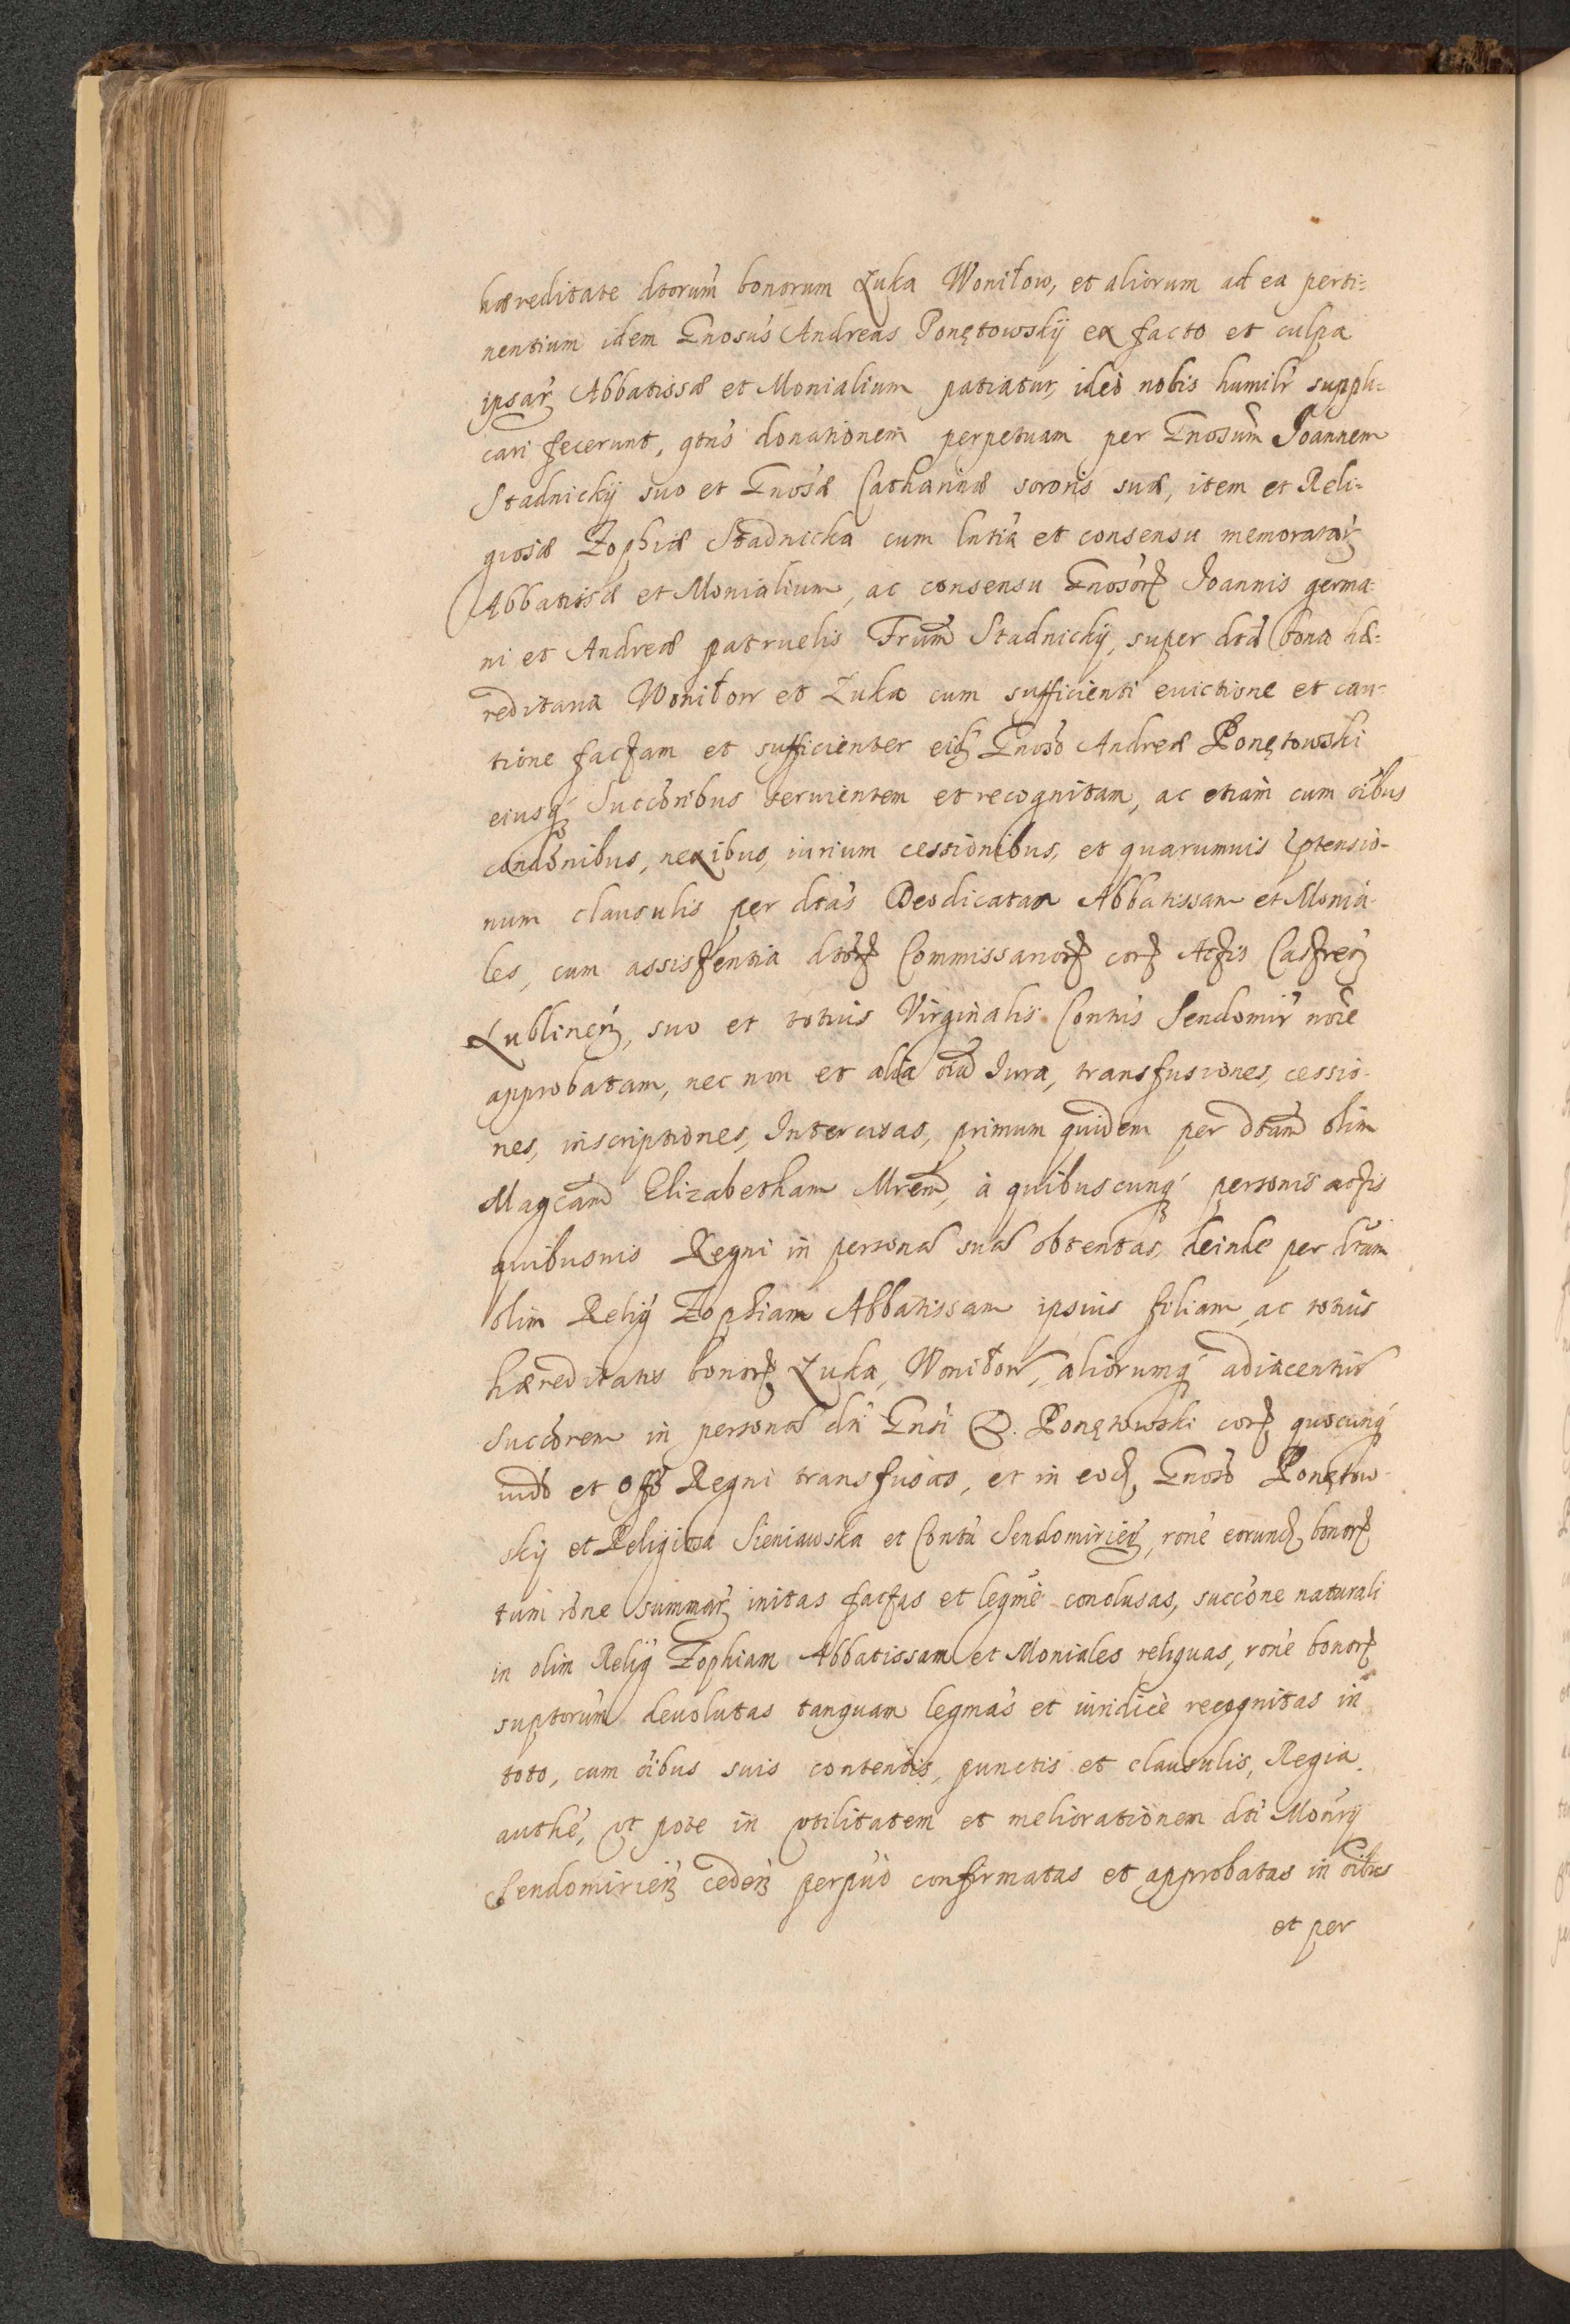 hæreditate dtorum̃ bonorum Łuka Woniłow, et aliorum ad ea perti=
nentium idem Gnosus Andreas Ponętowskÿ ex facto et culpa
ipsar̃ Abbatissæ et Monialium patiatur, ideò nobis humilr̃ suppli=
cari fecerunt, qtns donationem perpetuam per Gnosum̃ Joannem
Stadnickÿ suo et Gnosæ Catharinæ sororis suæ, item et Reli=
giosæ Zophiæ Stadnicka cum lntia et consensu memoratar̃
Abbatissæ et Monialium, ac consensu Gnosorꝝ Joannis germa=
ni et Andreæ patruelis Frum̃ Stadnickÿ, super dta bona hæ=
reditaria Woniłow et Łuka cum sufficienti euictione et cau=
tione factam et sufficienter eidꝫ Gnoso Andreæ Ponętowski
eiusqꝫ Succoribus seruientem et recognitam, ac etiam cum oibus
condonibus, nexibus, iurium cessionibus, et quarumuis ptensio=
num clausulis per dtas Deodicatam Abbatissam et Monia=
les, cum assistentia dtorꝝ Commissariorꝝ corꝝ Actis Castren̄
Lublinen̄, suo et totius Virginalis Contus Sendomir noïe
approbatam, nec non et alia oia Jura, transfusiones, cessio=
nes, inscriptiones, Intercisas, primum quidem per dtam olim
Magcam Elizabetham Mrem, à quibuscunqꝫ personis actis
quibusuis Regni in persona sua obtentas, deinde per dtam
olim Relig Zophiam Abbatissam ipsius filiam, ac totius
hæreditatis bonorꝝ Łuka, Woniłow, aliorumqꝫ adiacentiū
Succorem in persona dti Gnsi D. Ponętowski corꝝ quocunqꝫ
iudo et offo Regni transfusas, et in eodꝫ Gnoso Ponętow=
skÿ et Religiosa Sieniawska et Contu Sendomirien̄, rone eorundꝫ bonorꝝ
tum rone summar̃ initas factas et legme conclusas, succone naturali
in olim Relig Zophiam Abbatissam et Moniales reliquas, rone bonorꝝ
suptorum deuolutas tanquam legmas et iuridicè recognitas in
toto, cum oibus suis contentis, punctis et clausulis, Regia
authe, vt pote in vtilitatem et meliorationem dti Monrÿ
Sendomirien̄ ceden̄ perpuò confirmatas et approbatas in oibus
et per